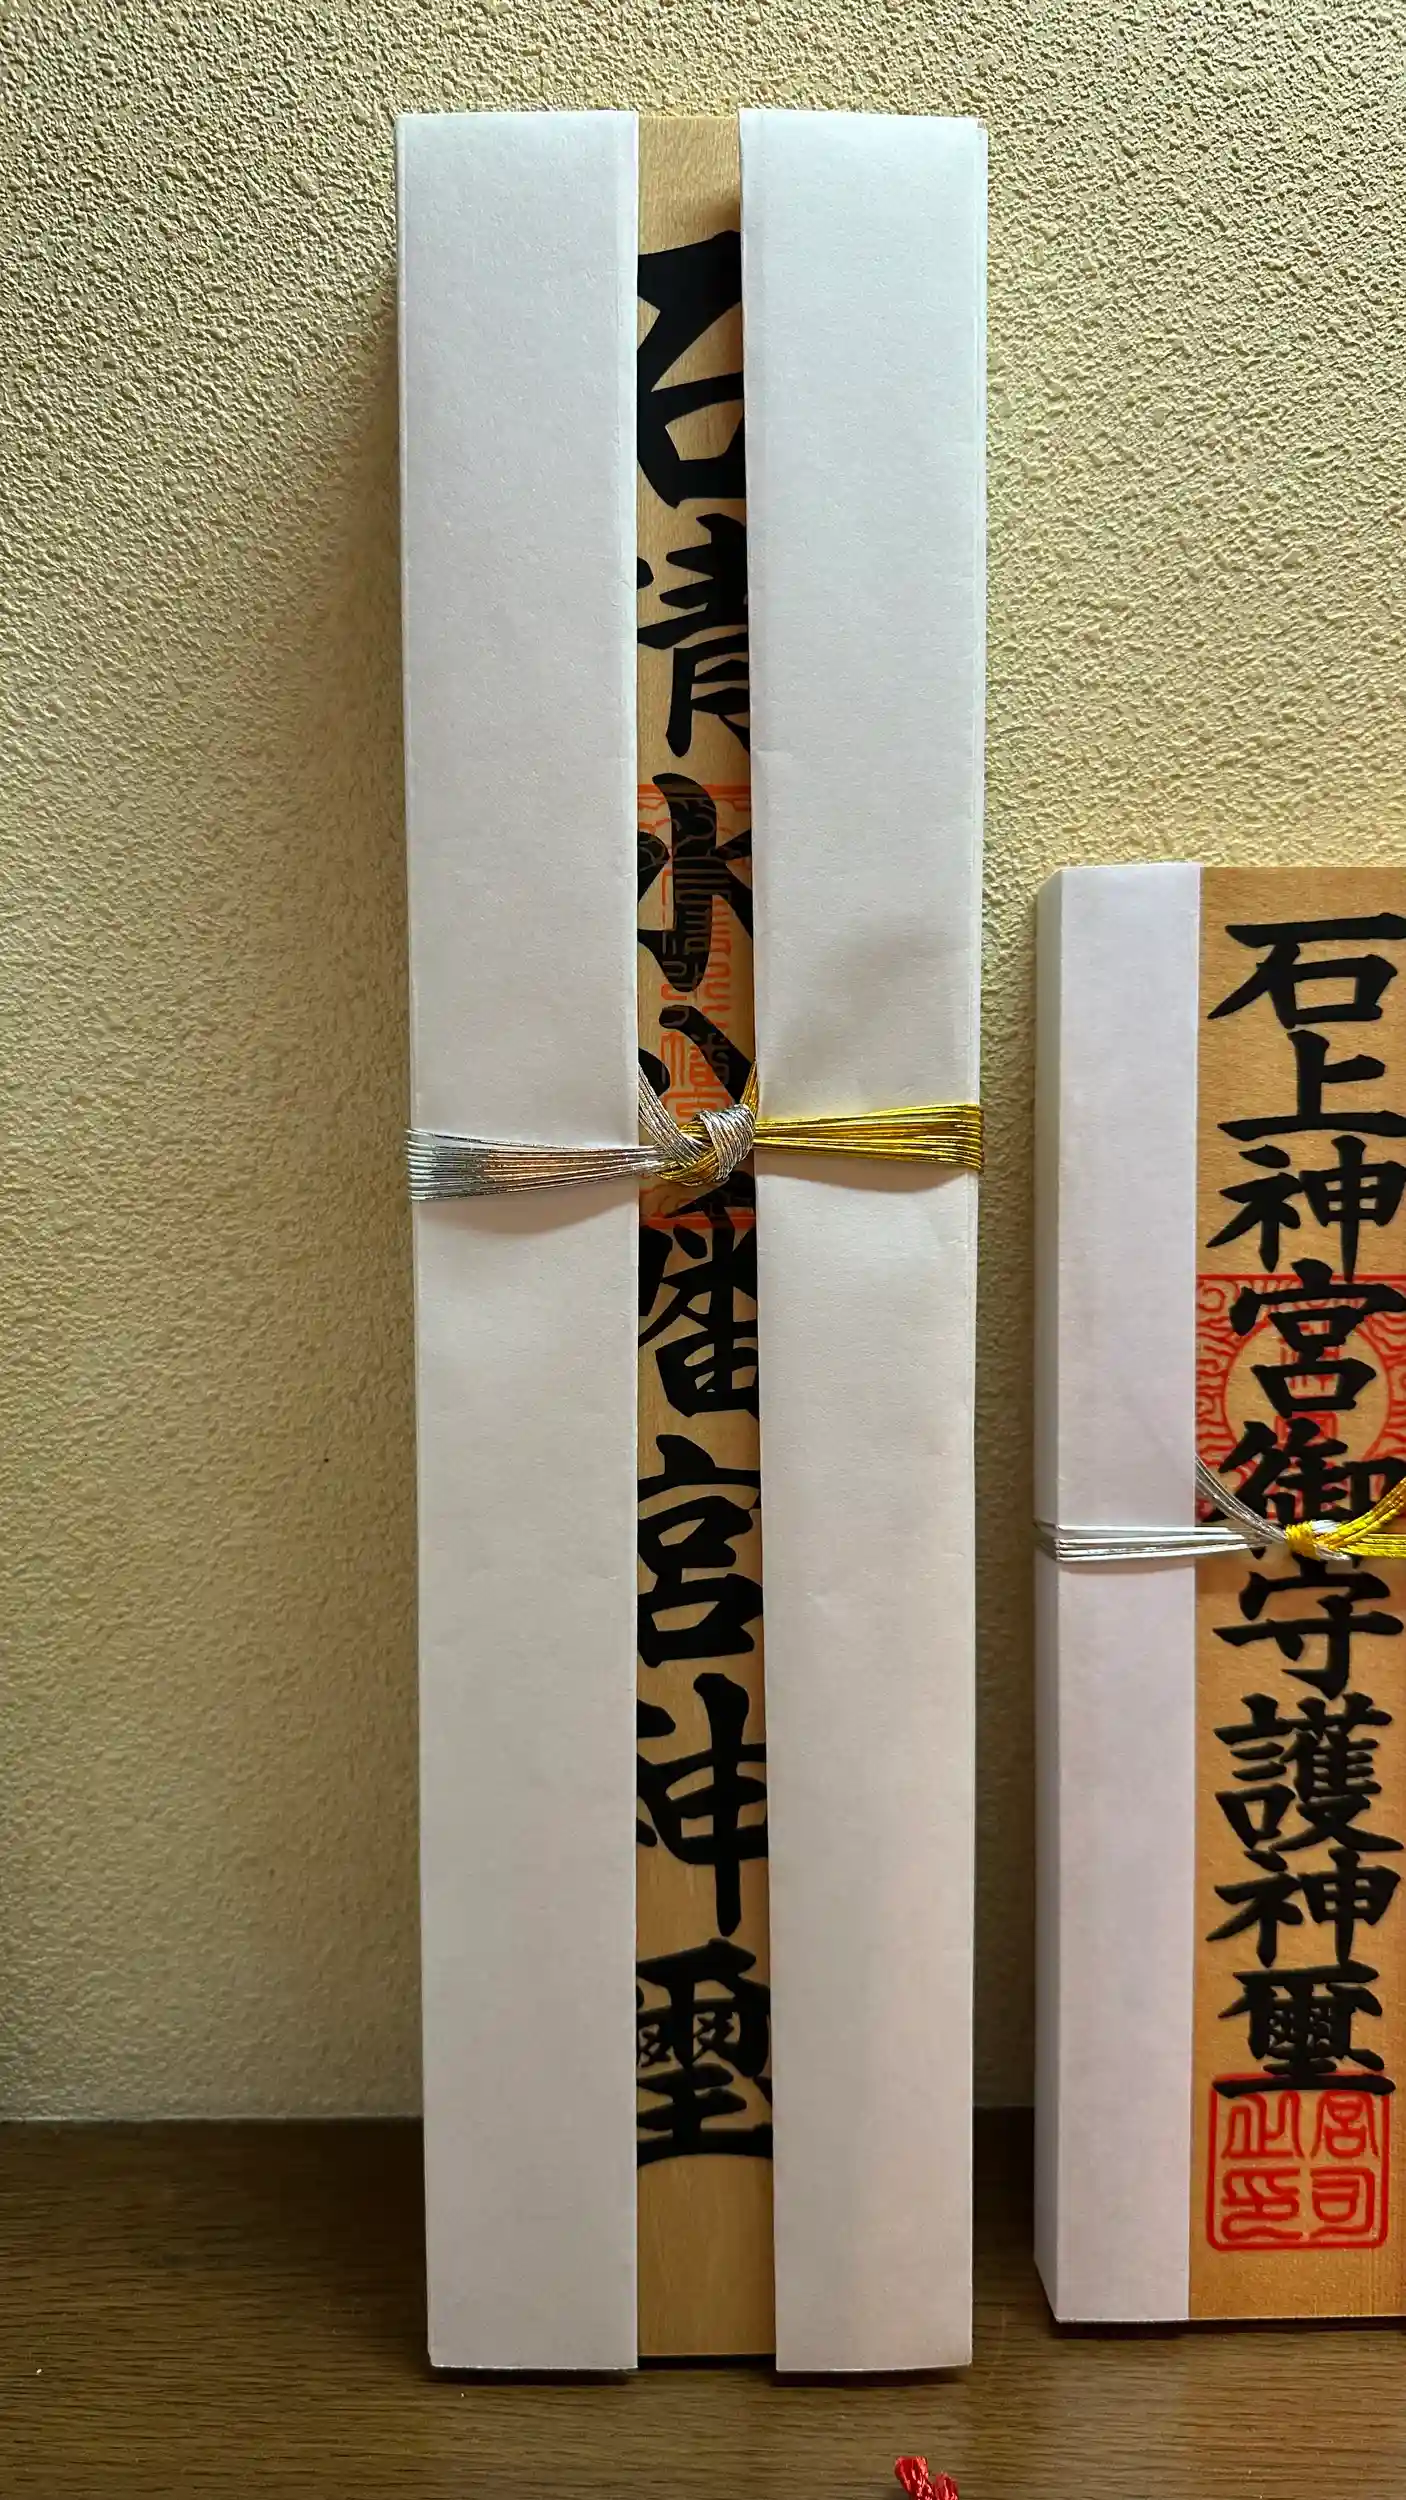 石清水八幡宮神璽
石上神宮御守護神璽
宮司之印